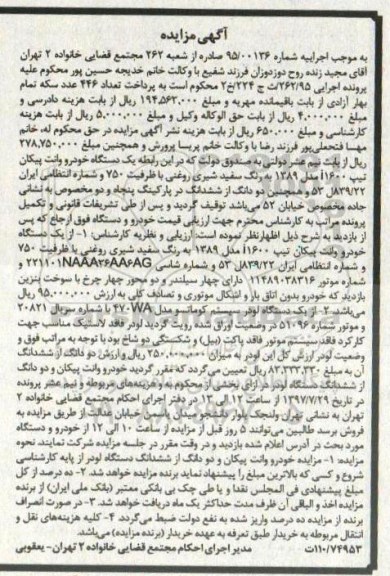 آگهی مزایده
به موجب اجراییه شماره ۹۵/۰۰۱۳۶ صادره از شعبه ۲۶۲ مجتمع قضایی خانواده ۲ تهران
آقای مجید زنده روح دوزدوزان فرزند شفیع با وکالت خانم خدیجه حسین پور محکوم علیه
پرونده اجرایی ۲۶۲/۹۵/ت ج ۲۲۴/خ۲ محکوم است به پرداخت تعداد ۴۴۶ عدد سکه تمام
بهار آزادی از بابت باقیمانده مهریه و مبلغ ۱۹۴.۵۶۲.۰۰۰ ریال از بابت هزینه دادرسی و
مبلغ ۴.۰۰۰.۰۰۰ ریال از بابت حق الوکاله وکیل و مبلغ ۵.۰۰۰.۰۰۰ ریال از بابت هزینه
کارشناسی و مبلغ ۶۵۰.۰۰۰ ریال از بابت هزینه نشر آگهی مزایده در حق محکوم له، خانم
مهسا فتحعلی‌پور فرزند رضا با وکالت خانم پریسا پرورش و همچنین مبلغ ۲۷۸.۷۵۰.۰۰۰
ریال از بابت نیم عشر دولتی به صندوق دولت که در این رابطه یک دستگاه خودرو وانت پیکان
تیپ ۱۶۰۰i مدل ۱۳۸۹ به رنگ سفید شیری روغنی با ظرفیت ۷۵۰ و شماره انتظامی ایران
۸۳۹/۲۲ل ۵۳ و همچنین دو دانگ از ششدانگ در پارکینگ پنجاه و دو مخصوص به نشانی
جاده مخصوص خیابان ۵۲ می‌باشد توقیف گردید و پس از طی تشریفات قانونی و تکمیل
پرونده مراتب به کارشناس محترم جهت ارزیابی قیمت خودرو و دستگاه فوق ارجاع که پس
از بازدید به شرح ذیل اظهارنظر نموده است: ارزیابی و نظریه کارشناس: ۱- از یک دستگاه
خودرو وانت پیکان تیپ ۱۶۰۰i مدل ۱۳۸۹ به رنگ سفید شیری روغنی با ظرفیت ۷۵۰
و شماره انتظامی ایران ۸۳۹/۲۲ل ۵۳ و شماره شاسی NAAA۳۶AA۶AG ۲۲۱۱۰۱ و
شماره موتور ۱۱۴۸۹۰۳۸۳۱۶ دارای چهار سیلندر و دو محور چهار چرخ با سوخت بنزین
بازدید که خودرو بدون اتاق بار و اشکال موتوری و تصادف کلی به ارزش ۹۵.۰۰۰.۰۰۰ ریال
می‌باشد. ۲- از یک دستگاه لودر سیستم کوماتسو مدل WA-۴۷۰ با شماره سریال ۲۰۸۲۱
و موتور شماره ۵۱۰۹۶ در وضعیت اوراق شده رویت گردید لودر فاقد لاستیک مناسب جهت
کارکرد فاقد سیستم موتور فاقد پاکت (بیل) و شکستگی دو شاخ بود با توجه به مراتب فوق و
وضعیت لودر ارزش کل این لودر به میزان ۲۵۰.۰۰۰.۰۰۰ ریال و ارزش دو دانگ از ششدانگ
آن به مبلغ ۸۳.۳۳۳.۳۳۰ ریال تعیین می‌گردد که مقرر گردید خودرو وانت پیکان و دو دانگ
از ششدانگ دستگاه لودر در ازای بخشی از محکوم به و هزینه‌های مربوطه و نیم عشر پرونده
در تاریخ ۱۳۹۷/۷/۲۹ از ساعت ۱۲ الی ۱۳ در دفتر اجرای احکام مجتمع قضایی خانواده ۲
تهران به نشانی تهران ونک بعد از دانشجو میدان خیابان عدالت از طریق مزایده به
فروش برسد طالبین می‌توانند ۵ روز قبل از مزایده از ساعت ۱۰ الی ۱۲ از خودرو و دستگاه
مورد بحث در آدرس اعلام شده بازدید و در وقت مقرر در جلسه مزایده شرکت نمایند. نحوه
مزایده: ۱- مزایده خودرو وانت پیکان و دو دانگ از ششدانگ دستگاه لودر از پایه کارشناسی
شروع و کسی که بالاترین مبلغ را پیشنهاد نماید برنده مزایده خواهد شد. ۲- ده درصد از کل
مبلغ پیشنهادی فی المجلس نقدا و یا طی چک بی بانکی معتبر (بانک ملی ایران) از برنده
مزایده اخذ و الباقی آن ظرف مدت حداکثر یک ماه دریافت خواهد شد. ۳- در صورت انصراف
برنده از مزایده ده درصد واریز شده به نفع دولت ضبط می‌گردد. ۴- کلیه هزینه‌های نقل و
انتقال مربوطه به خریدار طبق تعرفه به عهده خریدار (برنده مزایده) می‌باشد.
۱۱۰/۷۴۹۵۳ت مدیر اجرای احکام مجتمع قضایی خانواده ۲ تهران- یعقوبی